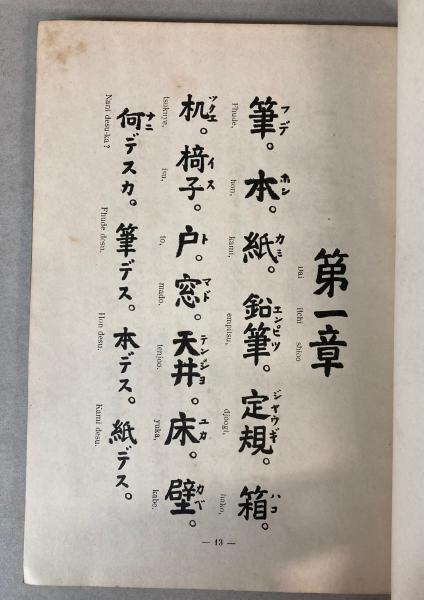 第一章
Dai itchi shioo
筆。本。紙。鉛筆。定規。箱。
フデ ホン カミ エンピツ ジヤウギ ハコ
Fhude, hon, kami, empitsu, djoogi, hako,
机。椅子。戸。窓。天井。床。壁。
ツクエ イス ト マド テンジヨ ユカ カベ
tsukuye, isu, to, mado, tenjoo. yuka, kabe.
何デスカ。筆デス。本デス。紙デス。
ナニ
Nani desu-ka? Fhude desu. Hon desu. Kami desu.
— 13 —